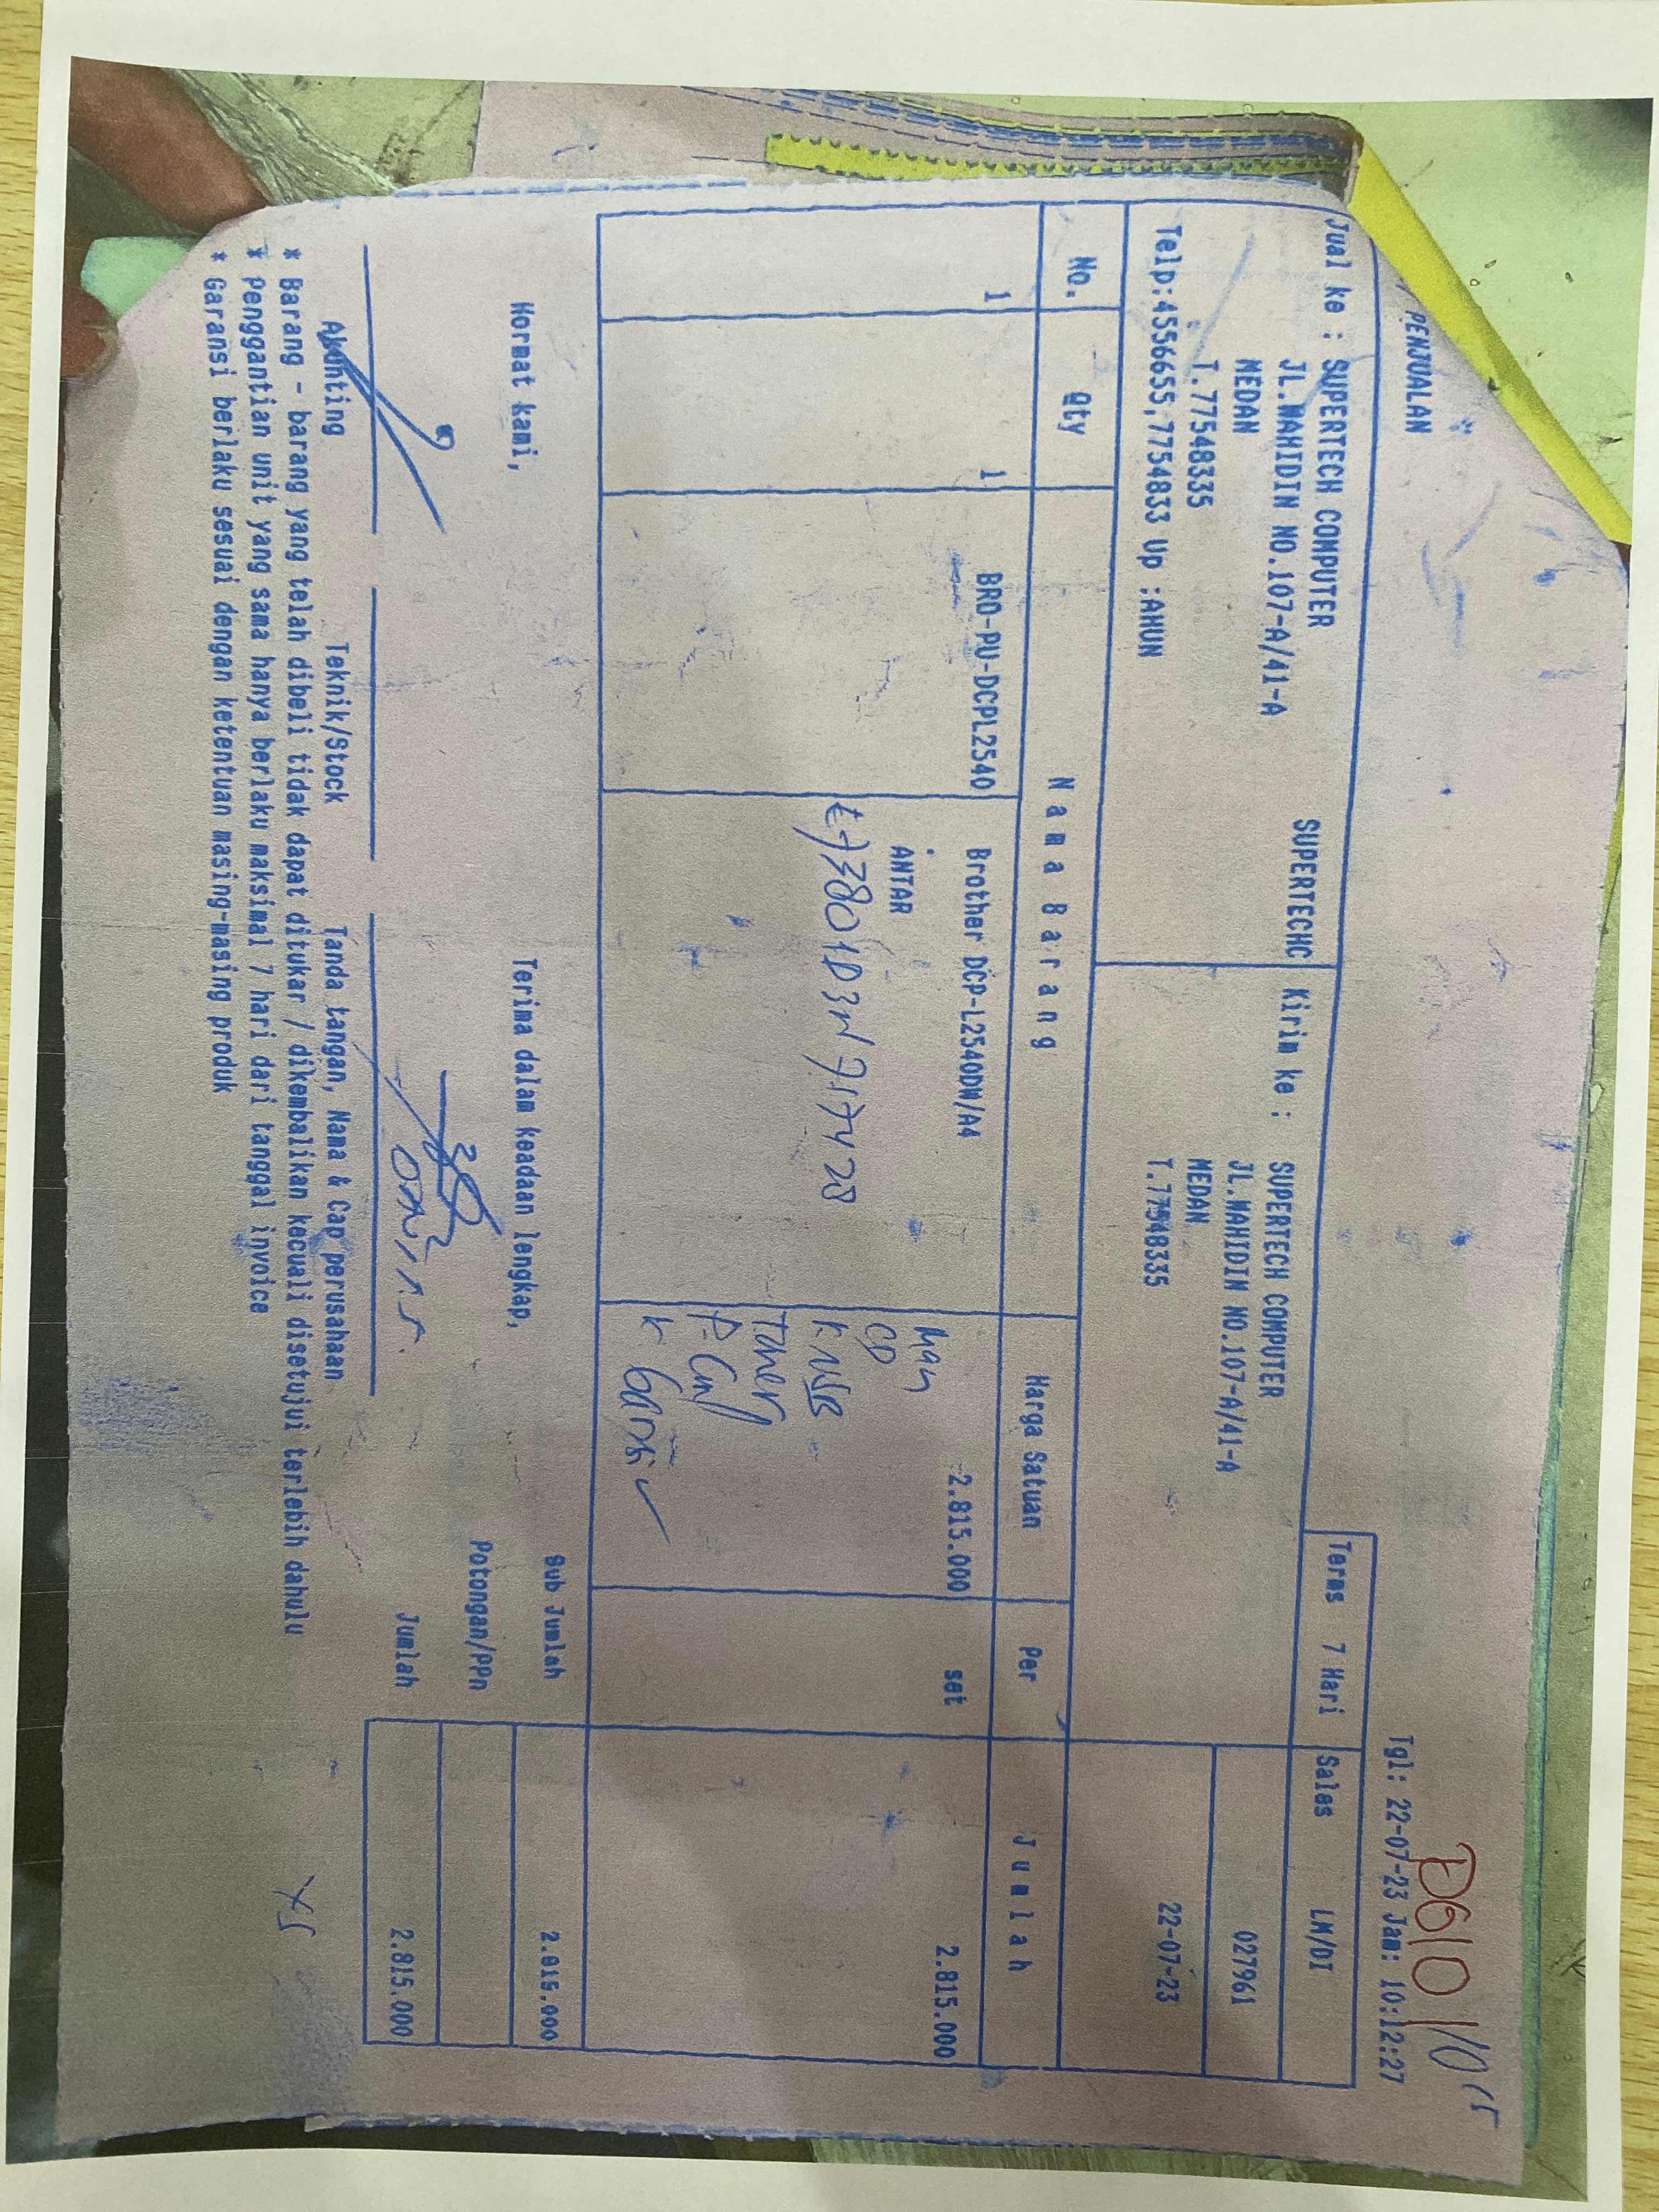 PENJUALAN
Tgl: 22-07-23 Jam: 10:12:27
Jual ke : SUPERTECH COMPUTER
SUPERTECHC
JL.WAHIDIN NO.107-A/41-A
MEDAN
T.77548335
Telp:4556655,7754833 Up :AHUN
Kirim ke :
SUPERTECH COMPUTER
JL.WAHIDIN NO.107-A/41-A
MEDAN
T.77548335
Terms 7 Hari Sales LM/DI
027961
22-07-23
No. Qty Nama Barang Harga Satuan Per Jumlah
1 1 BRO-PU-DCPL2540 Brother DCP-L2540DW/A4 2.815.000 set 2.815.000
ANTAR
Man
CD
K. USB
Toner
Hormat kami,
Terima dalam keadaan lengkap,
Sub Jumlah 2.815.000
Potongan/PPn
Jumlah 2.815.000
Akunting Teknik/Stock Tanda tangan, Nama & Cap perusahaan
* Barang - barang yang telah dibeli tidak dapat ditukar / dikembalikan kecuali disetujui terlebih dahulu
* Penggantian unit yang sama hanya berlaku maksimal 7 hari dari tanggal invoice
* Garansi berlaku sesuai dengan ketentuan masing-masing produk